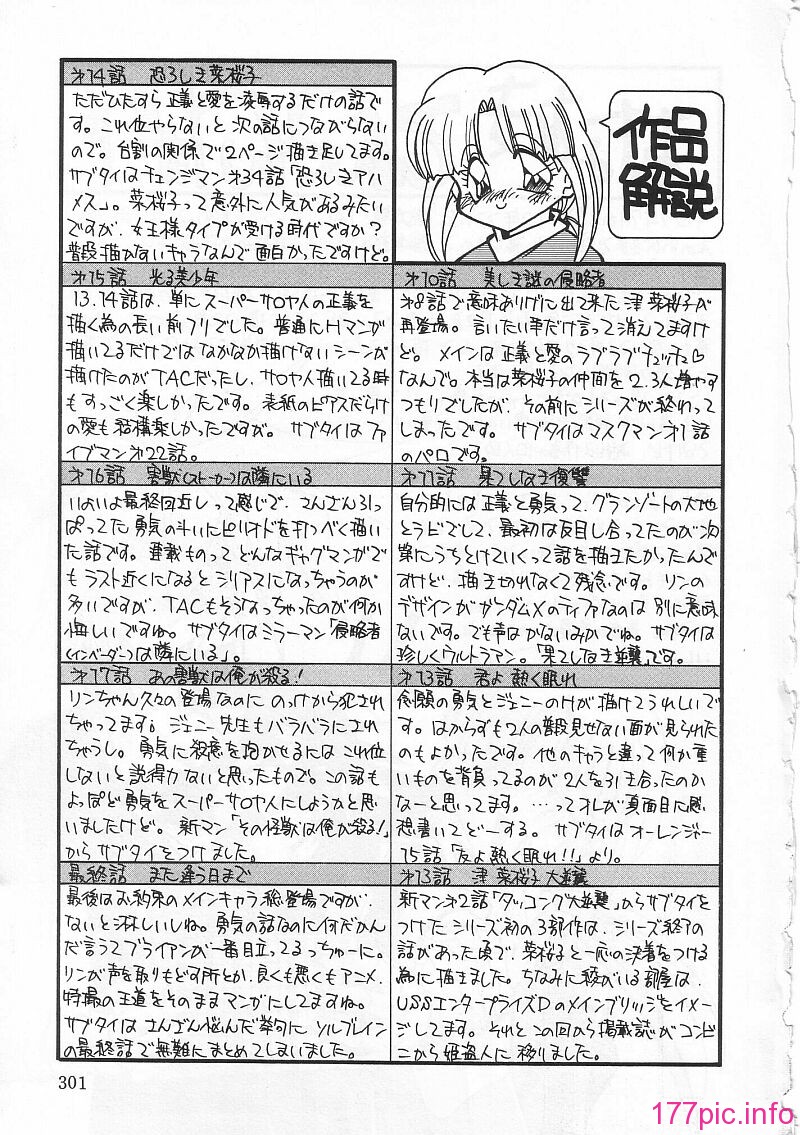 作品
解説
第10話 美しき謎の侵略者
第8話で意味ありげに出て来た津 菜桜子が
再登場。言いたい事だけ言って消えてますけ
ど。メインは正義と愛のラブラブチュッチュ♡
なんで。本当は菜桜子の仲間を2.3人増やす
つもりでしたが、その前にシリーズが終わって
しまったです。 サブタイはマスクマン第1話
のパロです。
第11話 果てしなき復讐
自分的には正義と勇気って、グランゾートの大地
とラビでして、最初は反目し合ってたのが次
第にうちとけていくって話を描きたかったんで
すけど、描き切れなくて残念です。リンの
デザインがガンダムXのティファなのは別に意味
ないです。でも声はかないみかでね。サブタイは
珍しくウルトラマン。「果てしなき逆襲」です。
第13話 君よ 熱く眠れ
念願の勇気とジェニーのHが描けてうれしいで
す。はからずも2人の普段見せない面が見られた
のもよかったです。他のキャラと違って何か重
いものを背負ってるのが2人を引き合ったのか
なーと思ってます。…ってオレが真面目に感
想書いてどーする。サブタイはオーレンジャー
15話「友よ熱く眠れ!!」より。
第13話 津 菜桜子 大逆襲
新マン第2話「タッコング大逆襲」からサブタイを
つけたシリーズ初の3部作は、シリーズ終了の
話があった頃で、菜桜子と一応の決着をつける
為に描きました。ちなみに彼がいる部屋は、
USSエンタープライズDのメインブリッジをイメー
ジしてます。それとこの回から掲載誌がコンビ
ニから姫盗人に移りました。
第14話 恐ろしき菜桜子
ただひたすら正義と愛を凌辱するだけの話で
す。これ位やらないと次の話につながらない
ので。台割の関係で2ページ描き足してます。
サブタイはチェンジマン第34話「恐ろしきアハ
メス」。菜桜子って意外に人気があるみたい
ですが、女王様タイプが受ける時代ですか?
普段描かないキャラなんで面白かったですけど。
第15話 光る美少年
13.14話は、単にスーパーサロヤ人の正義を
描く為の長い前フリでした。普通にHマンが
描いてるだけではなかなか描けないシーンが
描けたのがTACだったし、サロヤ人描いてる時
もすっごく楽しかったです。表紙のピアスだらけ
の愛も結構楽しかったですが。サブタイはファ
イブマン第22話。
第16話 害獣(ストーカー)は隣にいる
いよいよ最終回近しって感じで、さんざん引っ
ぱってた勇気の斗いにピリオドを打つべく描い
た話です。連載ものってどんなギャグマンガで
もラスト近くになるとシリアスになっちゃうのが
多いですが、TACもそうなっちゃったのが何か
悔しいですね。サブタイはミラーマン「侵略者
(インベーダー)は隣にいる」。
第17話 あの害獣は俺が殺る!
リンちゃん久々の登場なのに のっけから犯され
ちゃってます。ジェニー先生もバラバラにされ
ちゃうし。勇気に殺意を抱かせるには これ位
しないと説得力ないと思ったもので。この話も
よっぽど勇気をスーパーサロヤ人にしようかと思
いましたけど。新マン「その怪獣は俺が殺る!」
からサブタイをつけました。
最終話 また逢う日まで
最後はお約束のメインキャラ総登場ですが、
ないと淋しいしね。勇気の話なのに何だかん
だ言うてブライアンが一番目立ってるっちゅーに。
リンが声を取りもどす所とか、良くも悪くもアニメ、
特撮の王道をそのままマンガにしてますね。
サブタイはさんざん悩んだ挙句に ソルブレイン
の最終話で無難にまとめてしまいました。
301
177pic.info